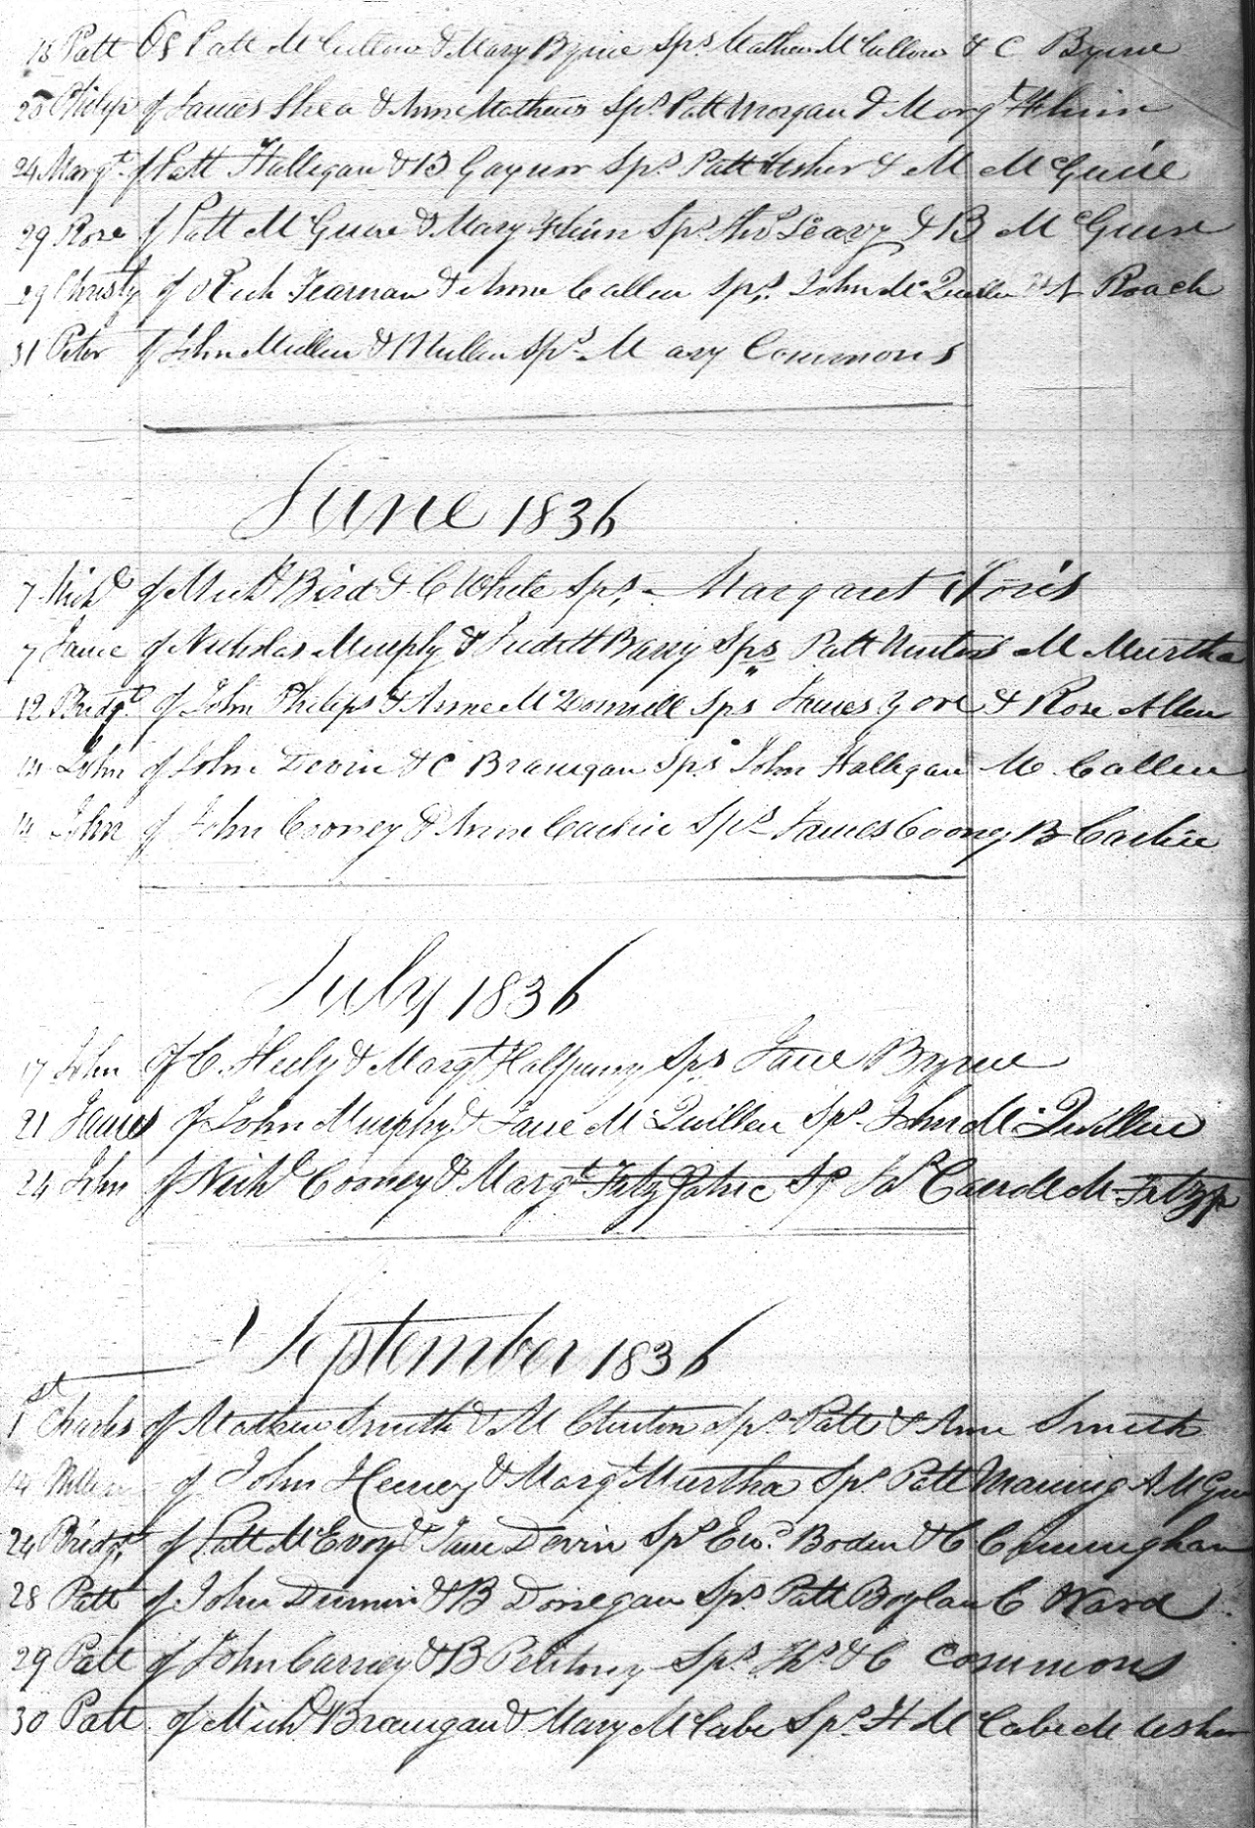 18 Patt Of Patt McCullow & Mary Byrne Sps Mathew McCullow & C Byrne
20 Philip of James Shea & Anne Mathews Sps Patt Morgan & Margt
24 Margt of Patt Halligan & B Gaynor Sps Patt Usher & M McGuire
29 Rose of Patt McGuire & Mary Flinn Sps Thos Leavy & B McGuire
29 Christy of Rich Fearnan & Anne Callen Sps John McQuillen & A Roach
31 Peter of John Mullen & Mullen Sps Mary Commons
June 1836
7 Michl of Michl Bird & C White Sps Margaret
7 Jane of Nicholas Murphy & Judith Barry Sps Patt M Murtha
12 Bridgt of John Philips & Anne McDonnell Sps James Gore & Rose Allen
14 John of John Devin & C Branigan Sps John Halligan M Callen
14 John of John Cooney & Anne Carlin Sps James Coony B Carlin
July 1836
17 John of C. Heely & Margt Halfpenny Sps Jane Byrne
21 James of John Murphy & Jane McQuillen Sps John McQuillen
24 John of Nichs Cooney & Margt FitzPatric Sps Jas M Fitzp
September 1836
1st Charles of Mathew Smith & M Clinton Sps Patt & Ann Smith
14 of John Heeney & Margt Murtha Sps Patt Manning A McGui
24 Bridgt of Patt McEvoy & Jane Devin Sps Boden & C Cunningham
28 Patt of John Dunnin & B Donegan Sps Patt Boylan C Ward
29 Patt of John Carney & B Sps Ths & C Commons
30 Patt of Michl Branigan & Mary McCabe Sps H McCabe M Usher